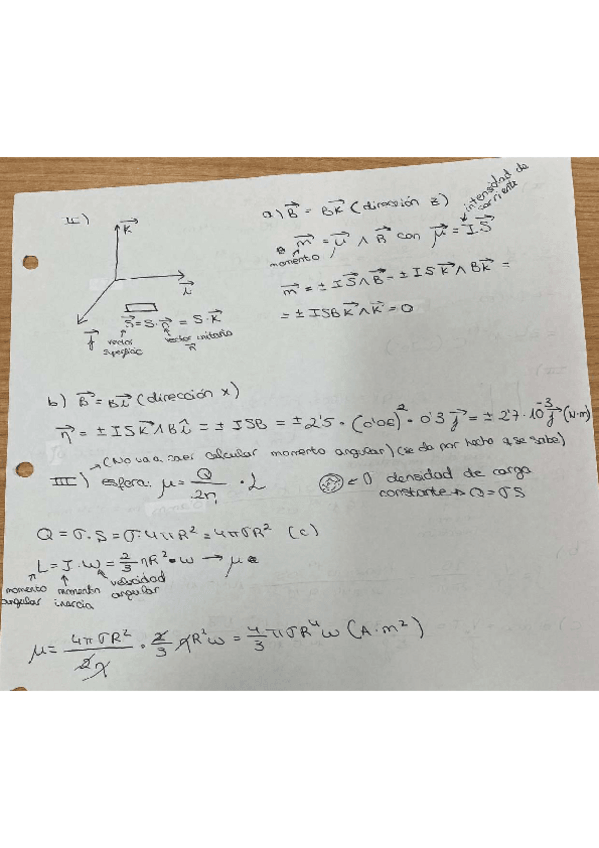 II)
K
i
j
S = S·n = S·K
vector superficie
vector unitario n
a) B = BK (dirección z)
m = μ ∧ B con μ = I.S
momento
intensidad de corriente
m = ± IS∧B = ± ISK∧BK =
= ± ISBK∧K = 0
b) B = Bi (dirección x)
η = ± ISK∧Bi = ± ISB = ± 2'5 · (0'06)² · 0'3 j = ± 2'7·10⁻³ j (N·m)
→ (No va a caer calcular momento angular) (se da por hecho q se sabe)
III) esfera: μ = Q/2η · L
densidad de carga
constante → Q = σS
Q = σ·S = σ·4πR² = 4πσR² (C)
L = I·ω = 2/3 ηR²·ω → μ
momento angular
momento inercia
velocidad angular
μ = 4πσR²/2η · 2/3 ηR²ω = 4/3 πσR⁴ω (A·m²)